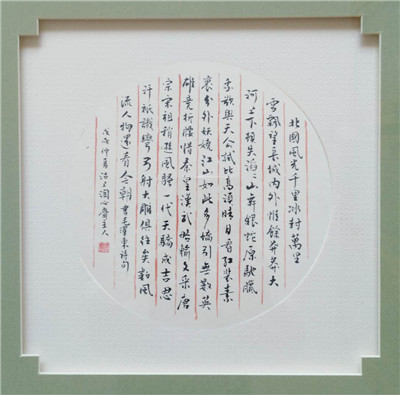 北國風光千里冰封萬里
雪飄望長城内外惟餘莽莽大
河上下頓失滔滔山舞銀蛇原馳臘
象欲與天公試比高須晴日看紅裝素
裹分外妖嬈江山如此多嬌引無數英
雄競折腰惜秦皇漢武略輸文采唐
宗宋祖稍遜風騷一代天驕成吉思
汗祇識彎弓射大雕俱往矣數風
流人物還看今朝書毛澤東詩句
戊戌仲夏心齋主人